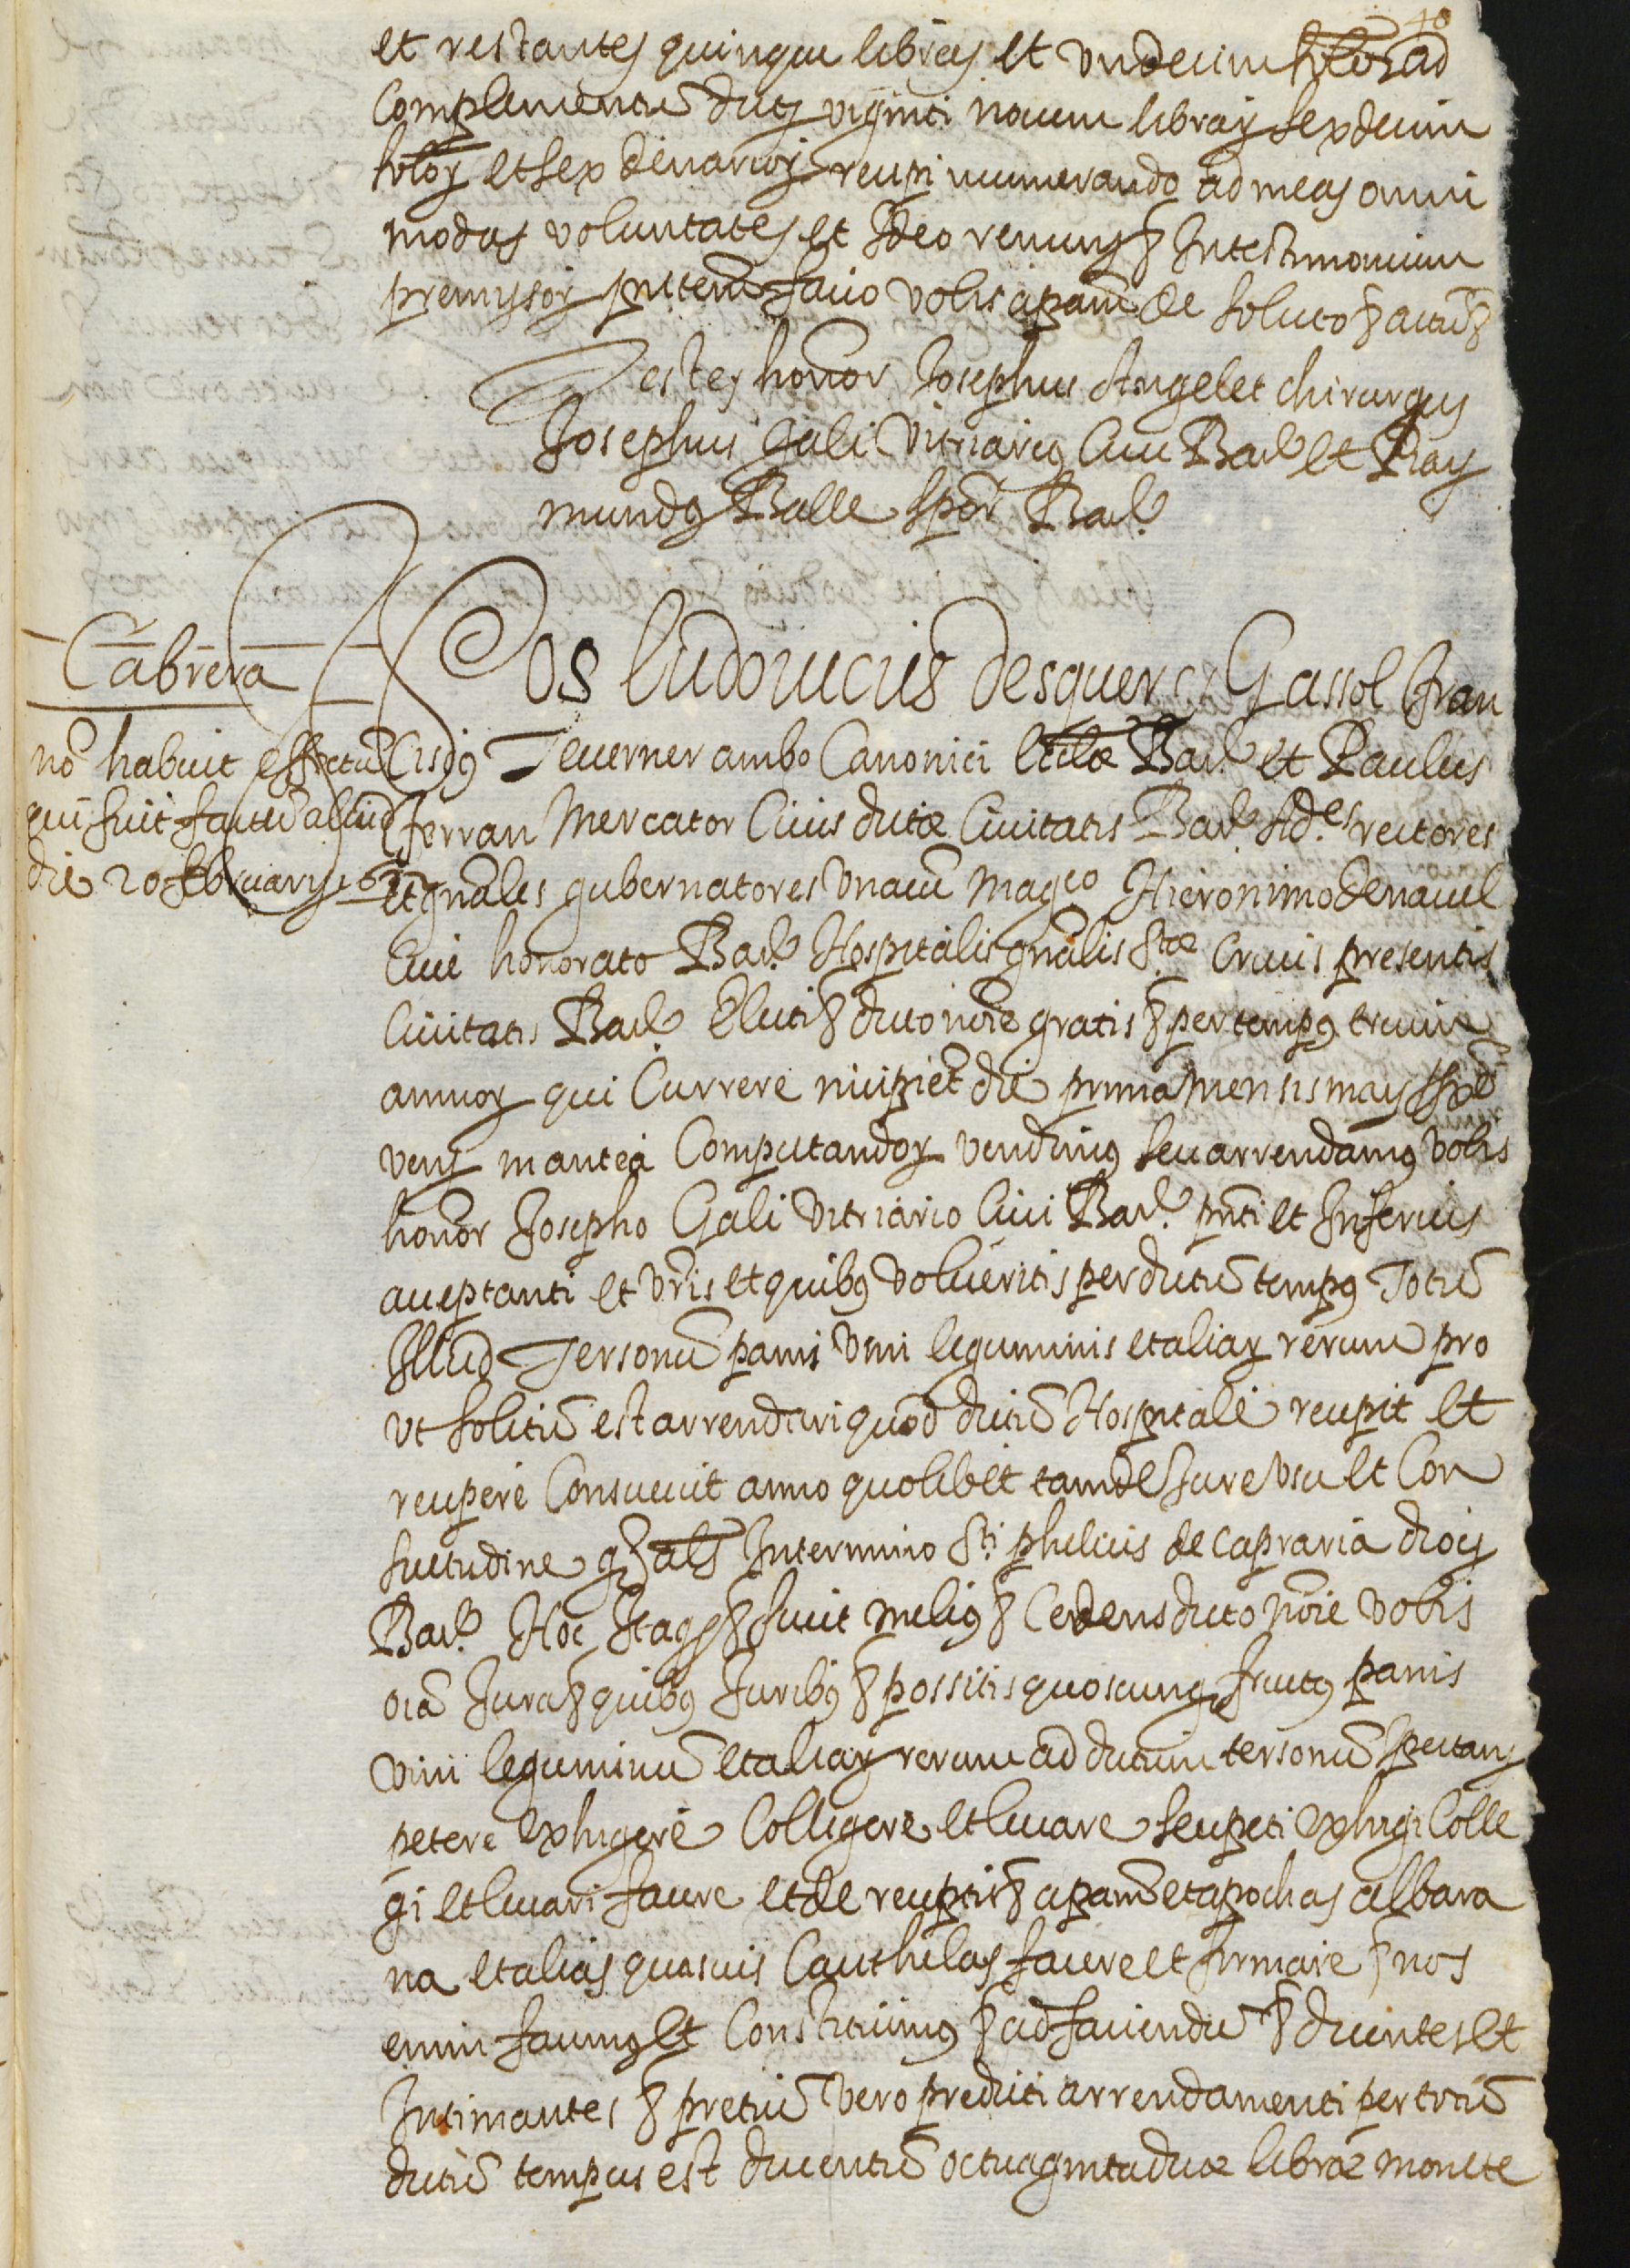 40
et restantes quinque libras et undecim solos ad
Complementũ dictȝ viginti novem librarꝝ sexdecim
solorꝝ et sex denariorꝝ recepi numerando ad meas omni
modas voluntates et Ideo renuns & In testimonium
premissorꝝ pntem facio vobis apam̃ de soluto & actũ &
Testes honor Josephus Angelet chirurgus
Josephus Gali vitriariꝰ Cives Barͤ et Ray
mundꝰ Balle scpor̃ Barͤ
Cabrera
nõ habuit effectũ
qui fuit factũ aliud
die 20 february
Nos Ludovicus Desquer et Gassol Fran
ciscꝰ Teverner ambo Canonici Ecclæ Barͤ et Paulus
Ferran Mercator Civis dictæ Civitatis Barͤ Ad.es rectores
et gnãles gubernatores unacũ Magco Hieronimo de navel
Cive honorato Barͤ Hospitalis gnãlis Stæ Crucis presentis
Civitatis Barͤ Electi & dicto noĩe gratis & per tempꝰ trium
annorꝝ qui Currere incipiet die prima mensis may
venꝝ in antea Computandorꝝ vendimꝰ seu arrendamꝰ vobis
honor Josepho Gali vitriario Civi Barͤ pñti et Inferius
acceptanti et vr̃is et quibꝰ volueritis per dictũ tempꝰ Totũ
Illud Tersonũ panis vini leguminis et aliarꝝ rerum pro
ut solitũ est arrendari quod dictũ Hospitale recepit et
recipere Consuevit anno quolibet tam de Jure usu et Con
suetudine qȝ als Intermino Sti phelicis de Capraria diocȝ
Barͤ Hoc Itaqȝ & sicut meliꝰ & Cedens dicto noĩe vobis
oĩa Jura & quibꝰ Juribꝰ & possitis quoscunqȝ fructꝰ panis
vini leguminũ et aliarꝝ rerum ad dictum tersonũ spectanȝ
petere exhigere Colligere et levare seu peti exhigi Colle
gi et levari facere et de receptis & apam̃ et apochas albara
na et alias quasvis Cauthelas facere et firmare & nos
enim facimꝰ et Constituimꝰ & ad faciendũ & dicentes et
Intimantes & pretiũ vero predicti arrendamenti per totũ
dictũ tempus est ducentũ octuaginta duæ libræ monete